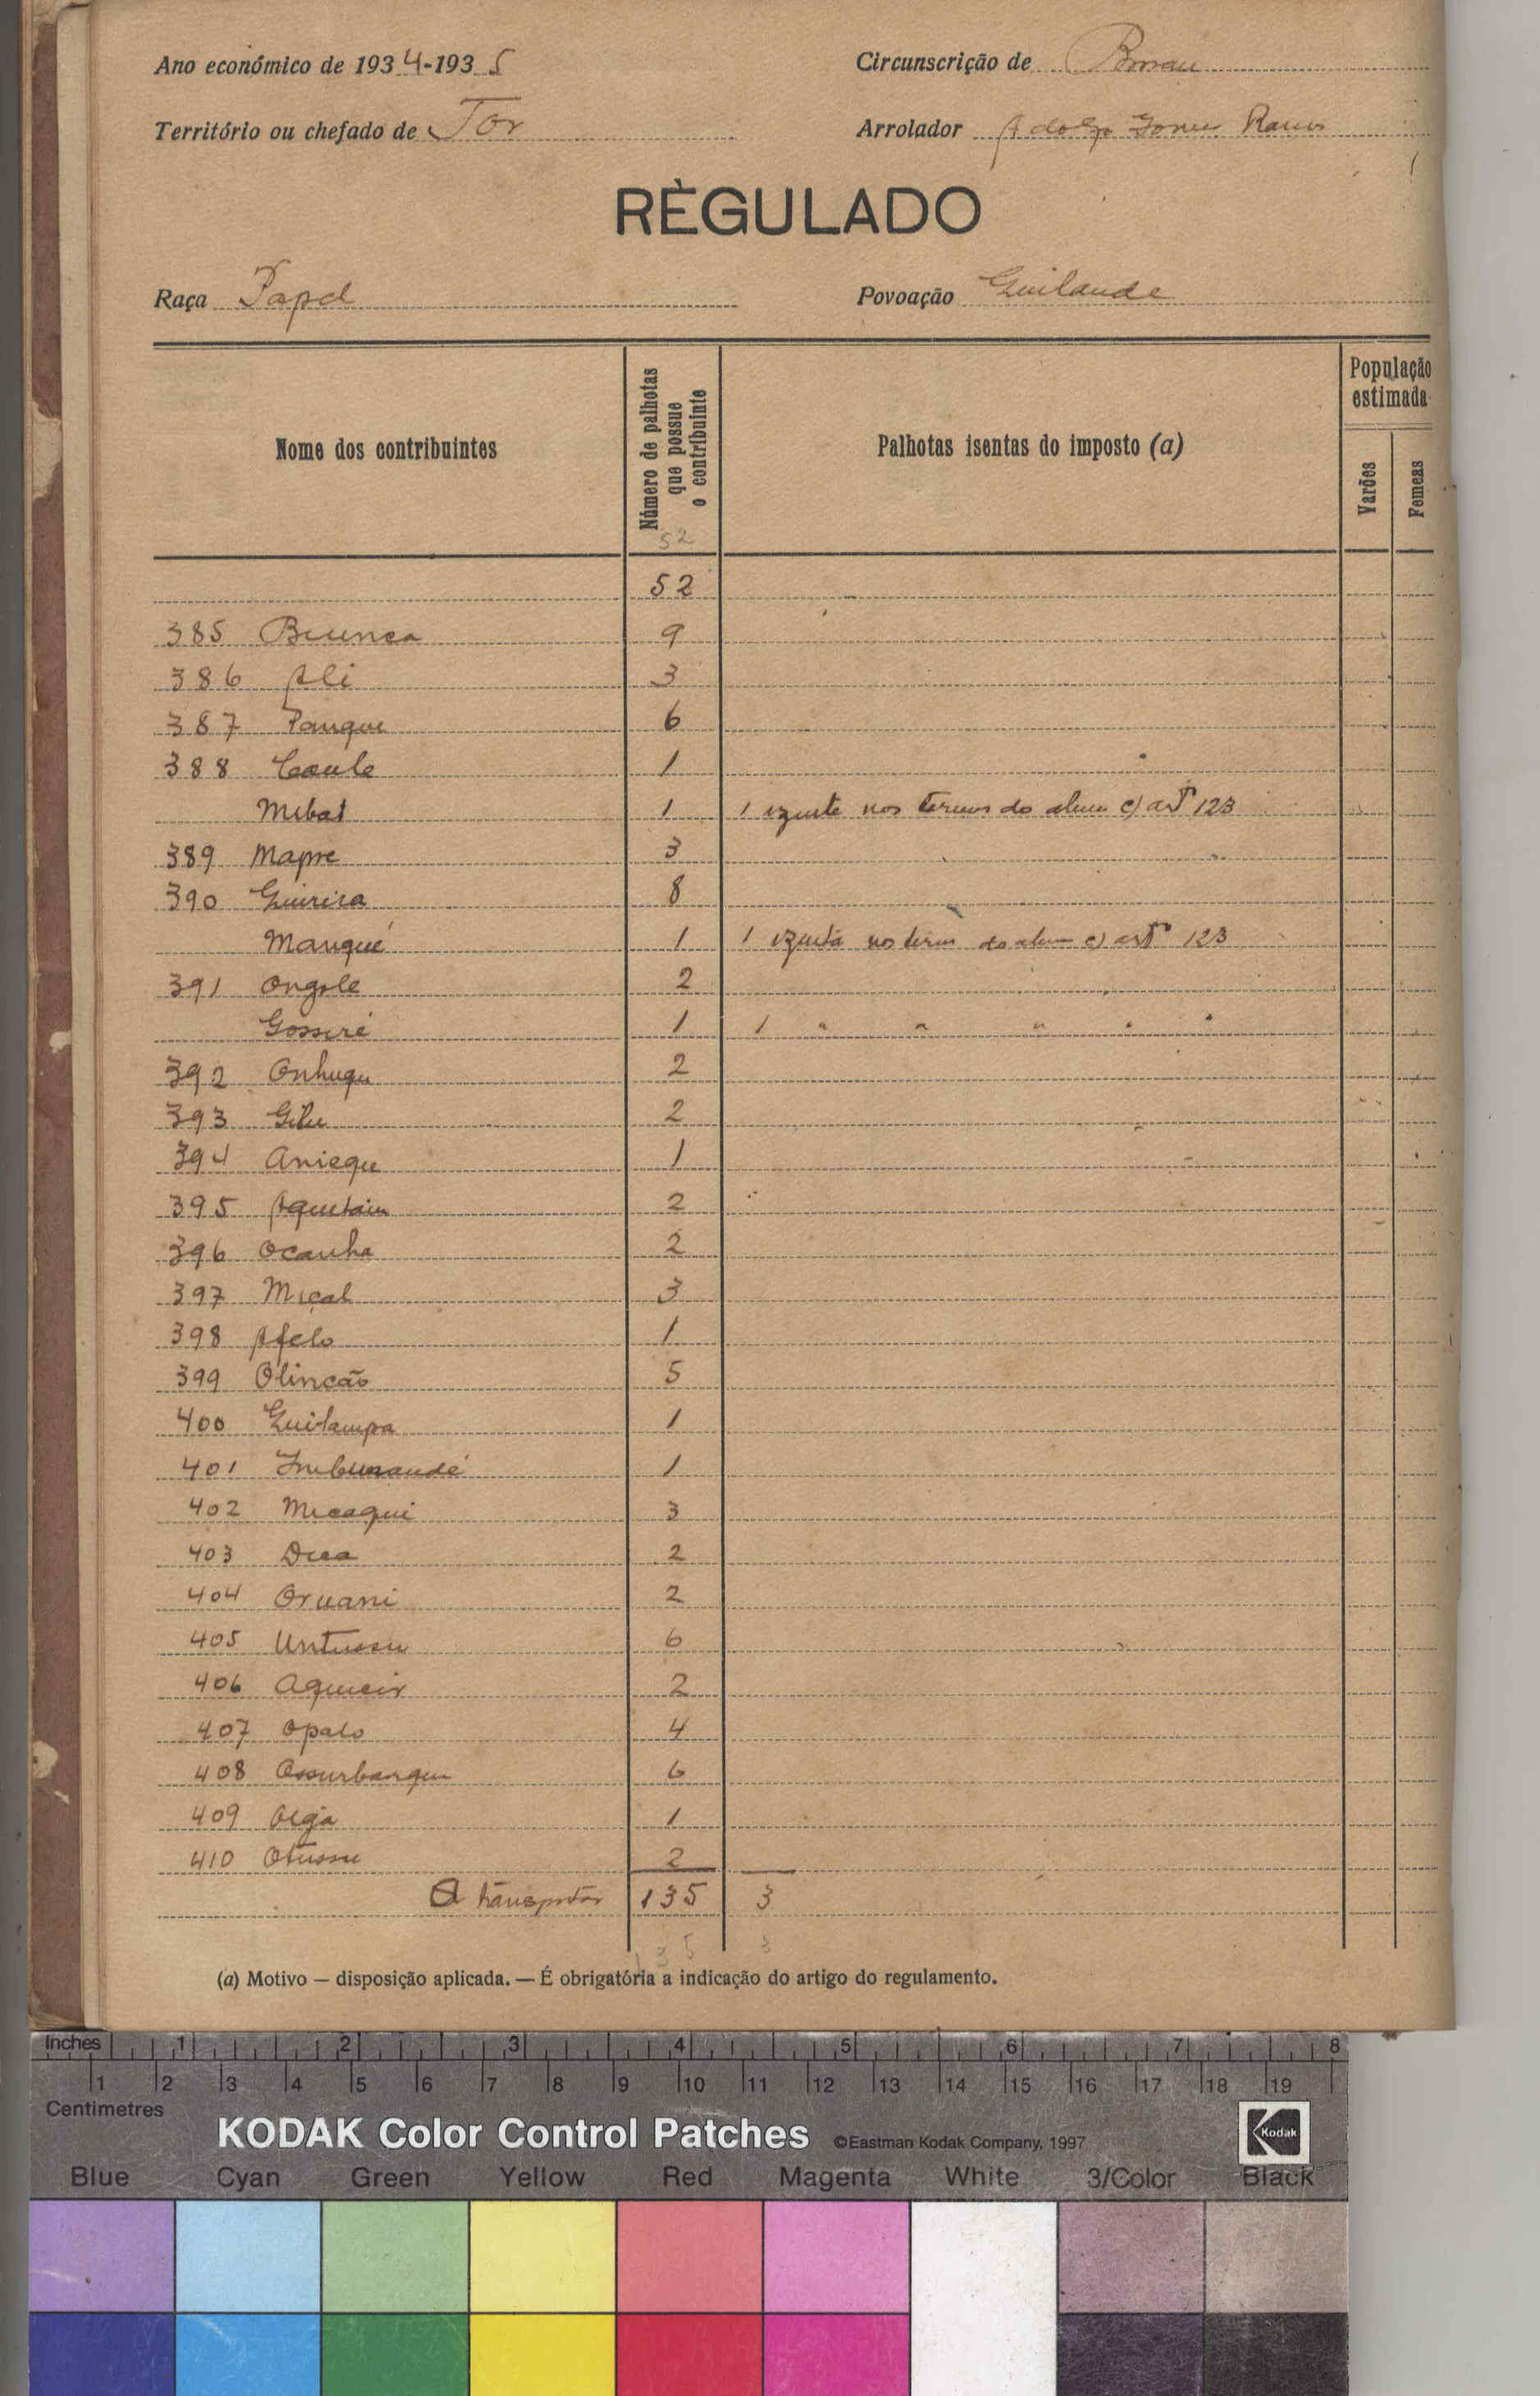 Ano económico de 1934-1935
Circunscrição de Bissau
Território ou chefado de Tor
Arrolador Adolfo Gomes Ramos
RÈGULADO
Raça Papel
Povoação Guilande
Nome dos contribuintes
Número de palhotas que possue o contribuinte
Palhotas isentas do imposto (a)
População estimada
Varões
Femeas
52
52
385 Biunca 9
386 Ali 3
387 Panque 6
388 Caule 1
Mebat 1 1 izente nos termos do alinea c) artº 123
389 Mapre 3
390 Guirira 8
Manqué 1 1 izenta nos termos do alinea c) artº 123
391 Ongole 2
Gossiré 1 1 " " " " "
392 Onhuque 2
393 2
394 Anieque 1
395 Aquetain 2
396 Ocanha 2
397 Miçal 3
398 Afelo 1
399 Olincão 5
400 Guitampa 1
401 1
402 Micaqui 3
403 2
404 Oruani 2
405 Untussu 6
406 Aqueeir 2
407 Opalo 4
408 Ossurbanque 6
409 1
410 Otussu 2
A transportar 135 3
135 3
(a) Motivo — disposição aplicada. — É obrigatória a indicação do artigo do regulamento.
Inches 1 2 3 4 5 6 7 8
1 2 3 4 5 6 7 8 9 10 11 12 13 14 15 16 17 18 19
Centimetres
KODAK Color Control Patches ©Eastman Kodak Company, 1997 Kodak
Blue Cyan Green Yellow Red Magenta White 3/Color Black